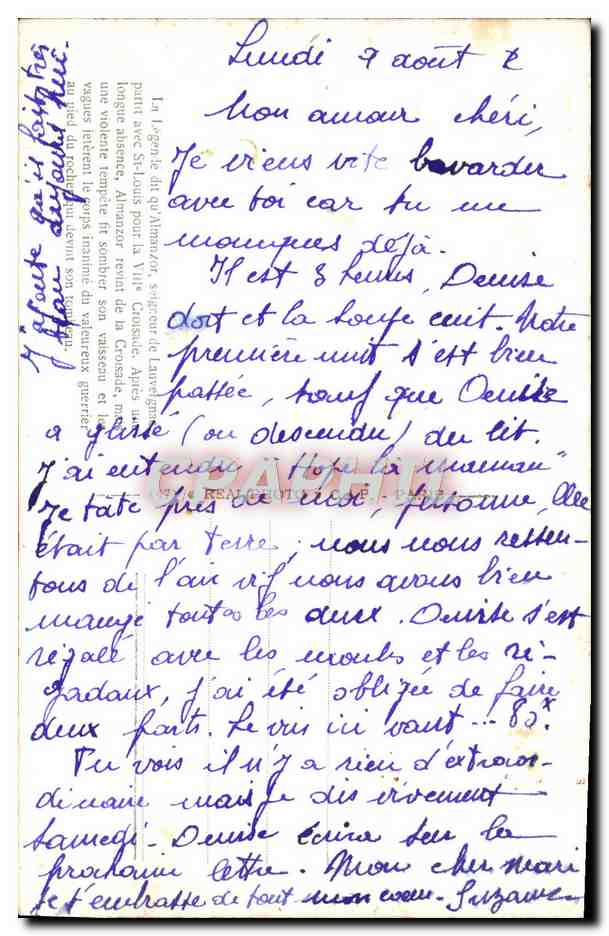 Lundi 9 août
Mon amour chéri,
Je viens vite bavarder
avec toi car tu me
manques déjà.
Il est 8 heures, Denise
dort et la soupe cuit. Notre
première nuit s'est bien
passée, sauf que Denise
a glissé (ou descendu) du lit.
J'ai entendu "Hop là maman"
Je tâte près de moi, personne, elle
était par terre, nous nous ressen-
tons de l'air vif nous avons bien
mangé toutes les deux. Denise s'est
régalé avec les moules et les ri-
gadaux, j'ai été obligée de faire
deux parts. Le vin ici vaut ... 85
Tu vois il n'y a rien d'extraor-
dinaire mais je dis vivement
Samedi - Denise écrira sur la
prochaine lettre. Mon cher mari
je t'embrasse de tout mon coeur - Suzanne
J'ajoute qu'il fait très
beau aujourd'hui.
La Légende dit qu'Almanzor, seigneur de Lauvergnac
partit avec St-Louis pour la VIIe Croisade. Après une
longue absence, Almanzor revint de la Croisade, mais
une violente tempête fit sombrer son vaisseau et les
vagues jetèrent le corps inanimé du valeureux guerrier
au pied du rocher qui devint son tombeau.
REAL-PHOTO C.A.P. - PARIS
CPAPHIL